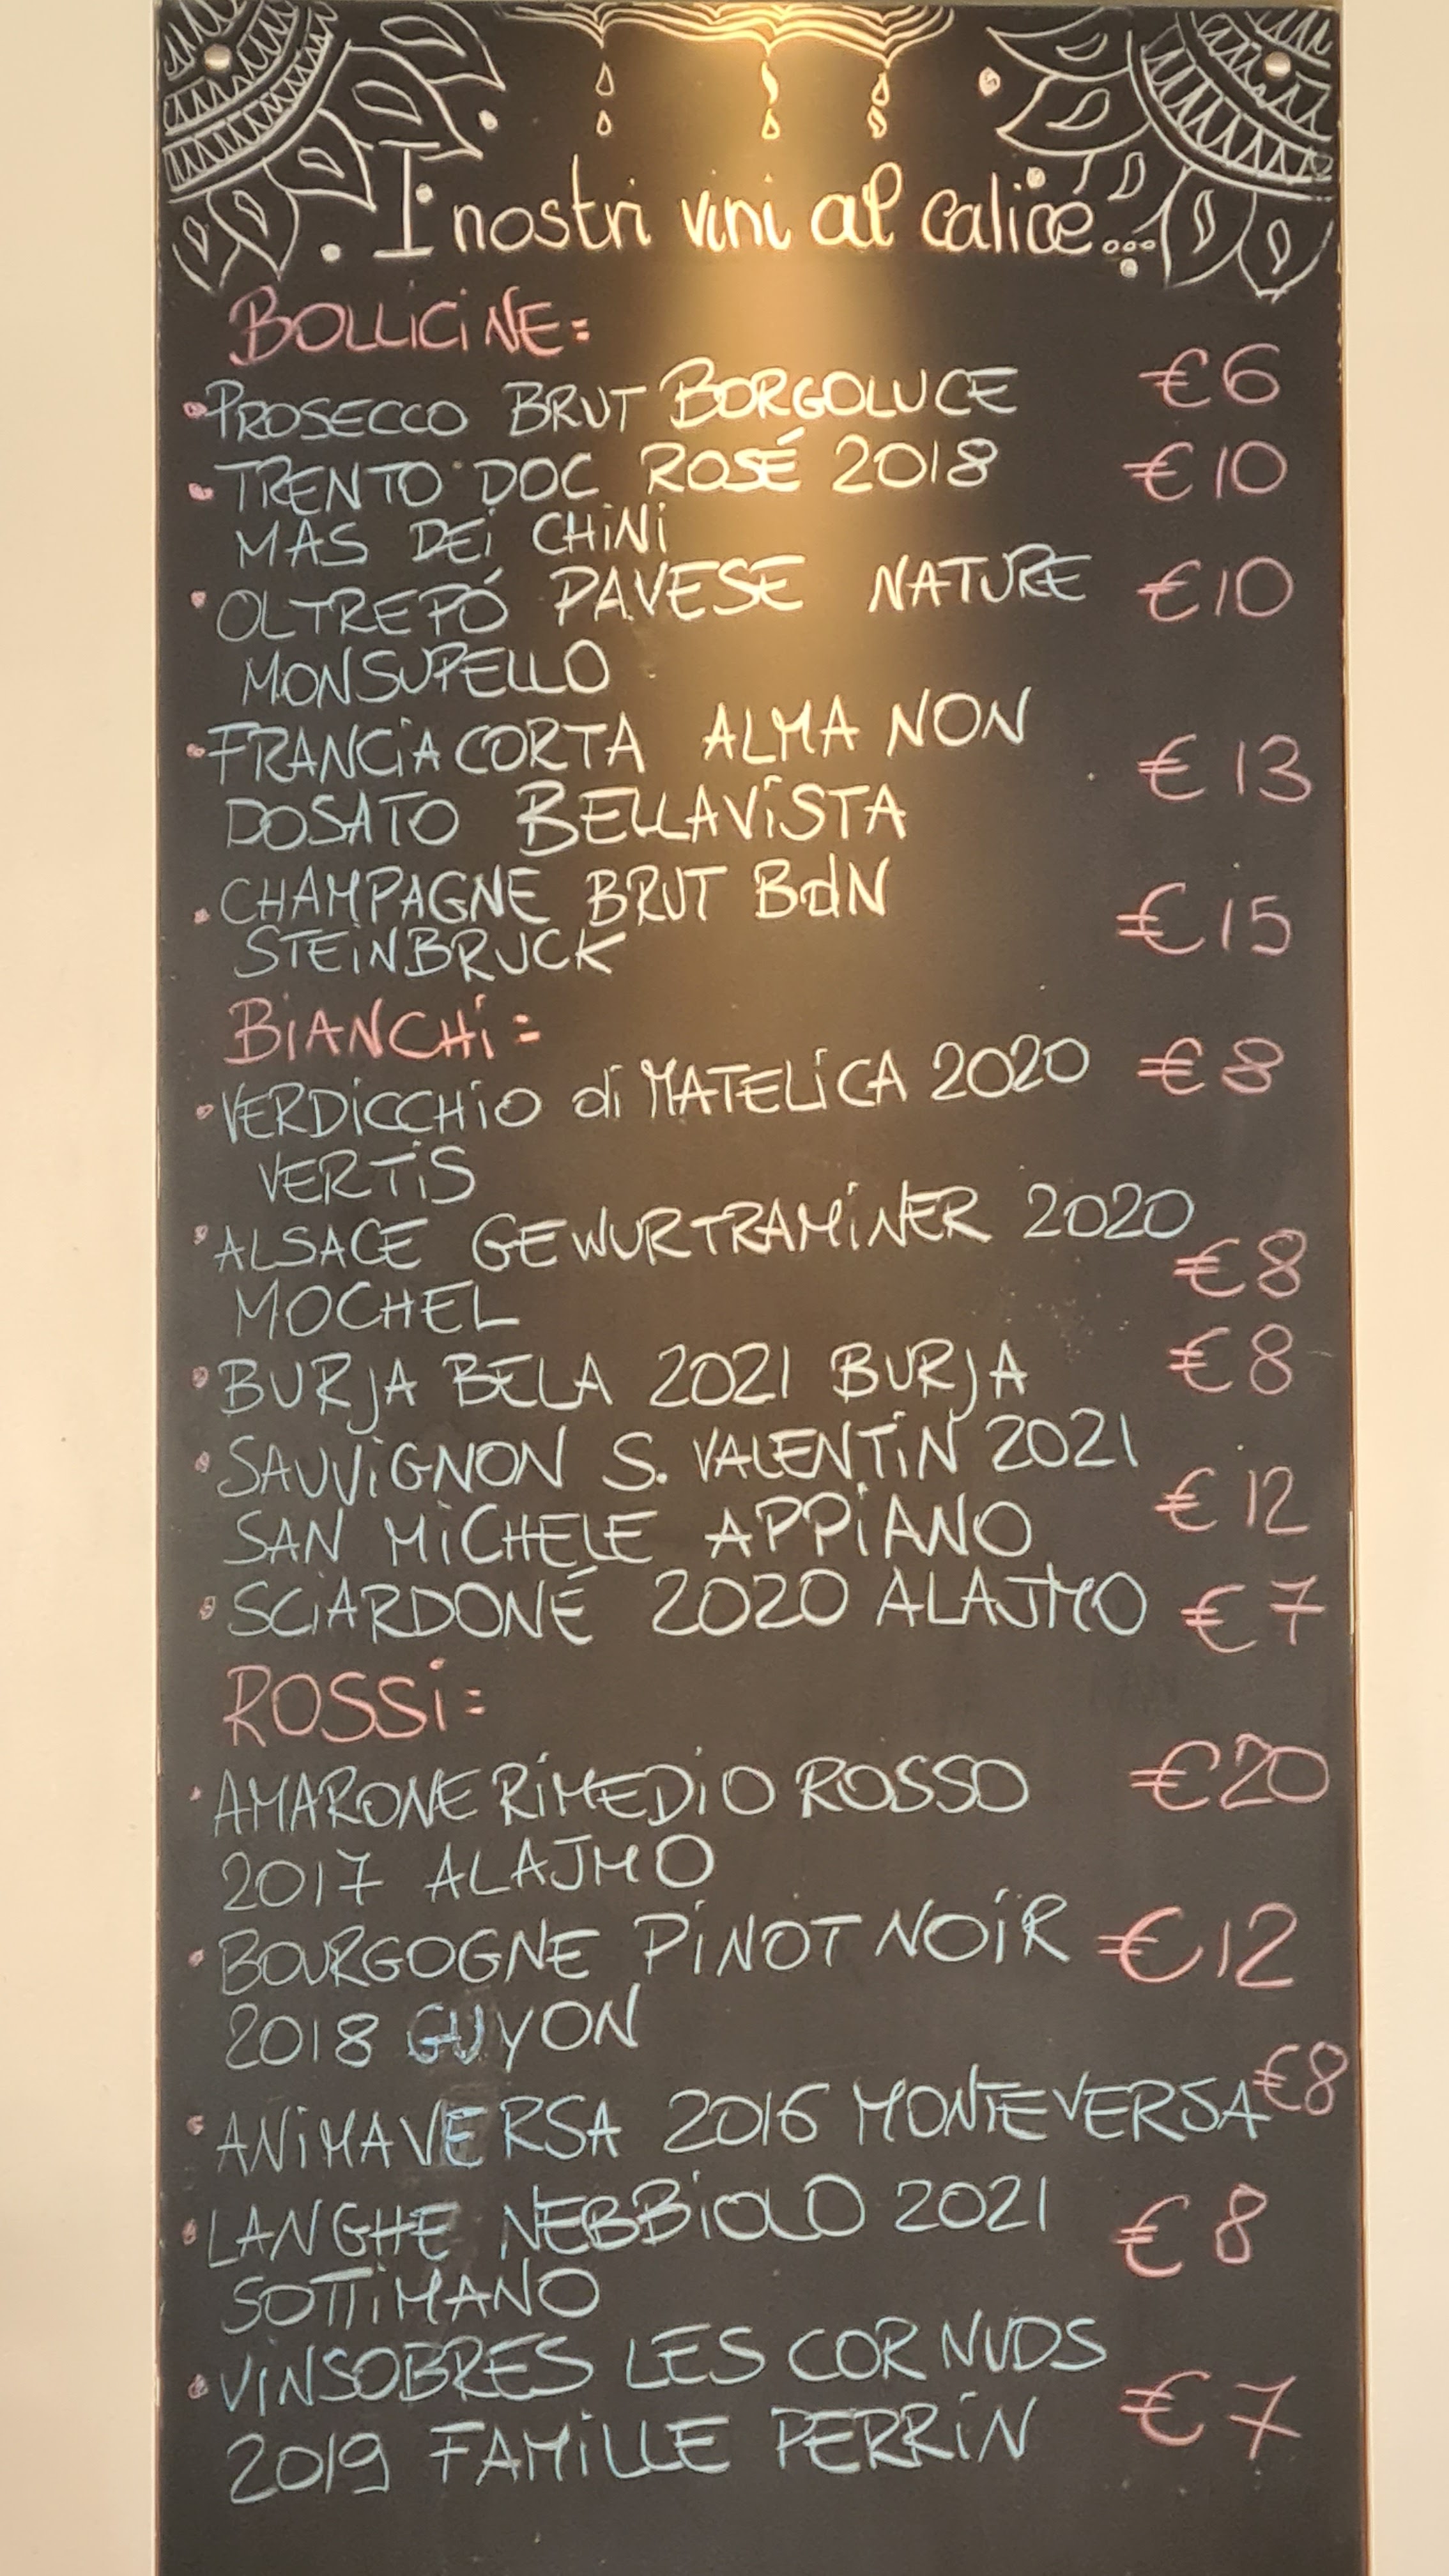 I nostri vini al calice...
BOLLICINE:
• PROSECCO BRUT BORGOLUCE €6
• TRENTO DOC ROSÉ 2018 €10
MAS DEI CHINI
• OLTREPÓ PAVESE NATURE €10
MONSUPELLO
• FRANCIACORTA ALMA NON
DOSATO BELLAVISTA €13
• CHAMPAGNE BRUT BdN
STEINBRUCK €15
BIANCHI:
• VERDICCHIO di MATELICA 2020 €8
VERTIS
• ALSACE GEWURTRAMINER 2020
MOCHEL €8
• BURJA BELA 2021 BURJA €8
• SAUVIGNON S. VALENTIN 2021
SAN MICHELE APPIANO €12
• SCIARDONÉ 2020 ALAJMO €7
ROSSI:
• AMARONE RIMEDIO ROSSO €20
2017 ALAJMO
• BOURGOGNE PINOT NOIR €12
2018 GUYON
• ANIMAVERSA 2016 MONTEVERSA €8
• LANGHE NEBBIOLO 2021 €8
SOTTIMANO
• VINSOBRES LES CORNUDS
2019 FAMILLE PERRIN €7